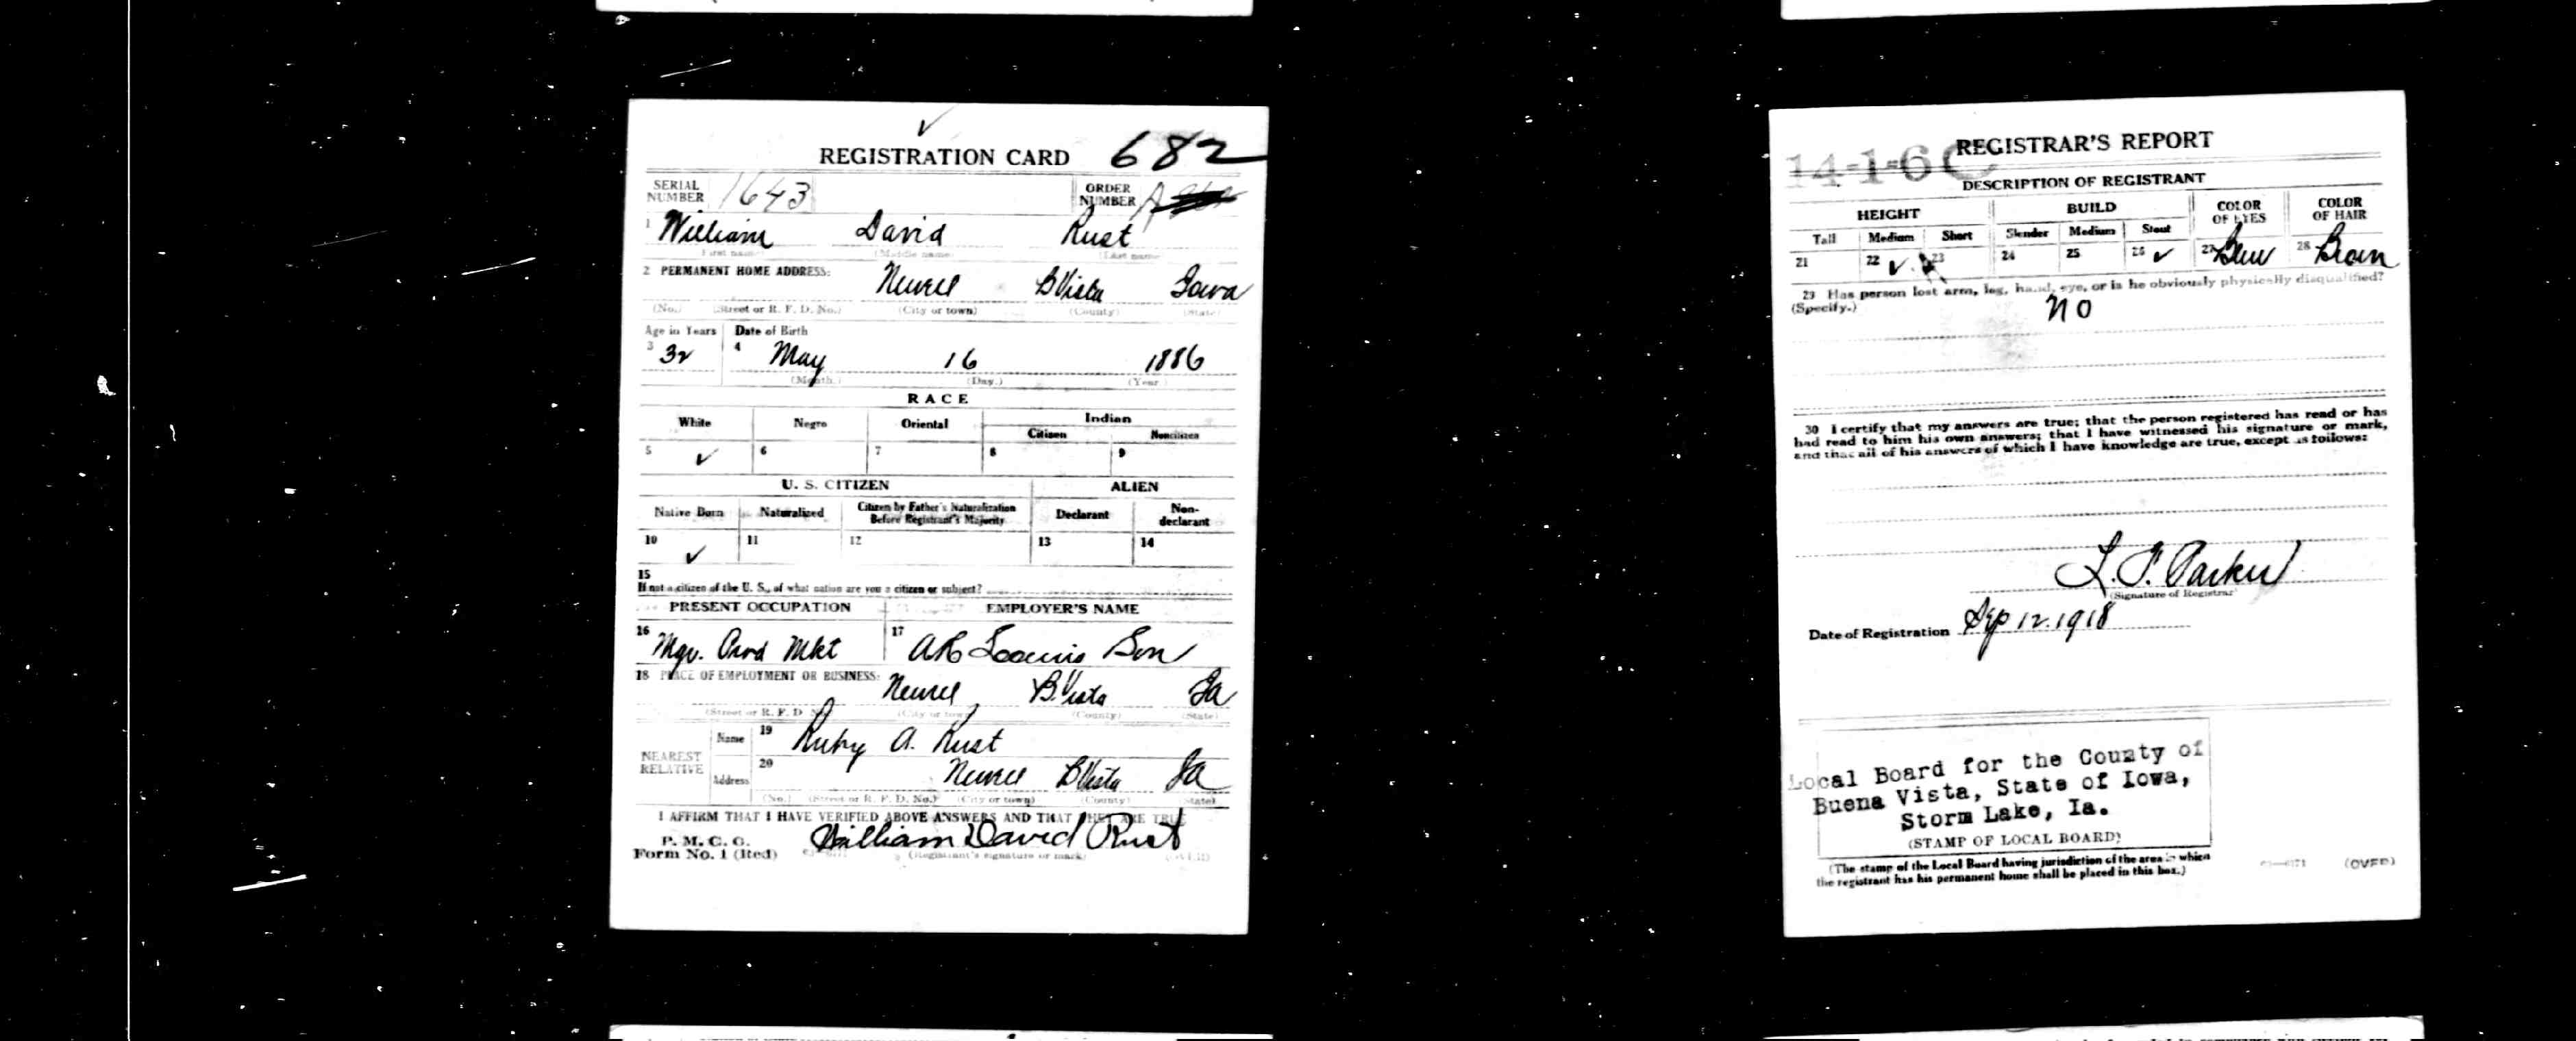 REGISTRATION CARD 682
SERIAL NUMBER 1643 ORDER NUMBER A
1 William David Rust
(First name) (Middle name) (Last name)
2 PERMANENT HOME ADDRESS: Newell B Vista Iowa
(No.) (Street or R. F. D. No.) (City or town) (County) (State)
Age in Years Date of Birth
3 32 4 May 16 1886
(Month.) (Day.) (Year.)
RACE
White Negro Oriental Indian
Citizen Noncitizen
5 ✓ 6 7 8 9
U. S. CITIZEN ALIEN
Native Born Naturalized Citizen by Father's Naturalization Before Registrant's Majority Declarant Non-declarant
10 ✓ 11 12 13 14
15
If not a citizen of the U. S., of what nation are you a citizen or subject?
PRESENT OCCUPATION EMPLOYER'S NAME
16 Mgr. Prod Mkt 17 AR Loomis Son
18 PLACE OF EMPLOYMENT OR BUSINESS: Newell B. Vista Ia
(Street or R. F. D. No.) (City or town) (County) (State)
NEAREST RELATIVE
Name 19 Ruby A. Rust
Address 20 Newell B Vista Ia
(No.) (Street or R. F. D. No.) (City or town) (County) (State)
I AFFIRM THAT I HAVE VERIFIED ABOVE ANSWERS AND THAT THEY ARE TRUE
P. M. G. O.
Form No. 1 (Red) William David Rust
(Registrant's signature or mark) (OVER)
REGISTRAR'S REPORT
14-1-6 C
DESCRIPTION OF REGISTRANT
HEIGHT BUILD COLOR OF EYES COLOR OF HAIR
Tall Medium Short Slender Medium Stout
21 22 ✓ 23 24 25 26 ✓ 27 Blue 28 Brown
29 Has person lost arm, leg, hand, eye, or is he obviously physically disqualified?
(Specify.) no
30 I certify that my answers are true; that the person registered has read or has
had read to him his own answers; that I have witnessed his signature or mark,
and that all of his answers of which I have knowledge are true, except as follows:
L. F. Parker
(Signature of Registrar)
Date of Registration Sep 12. 1918
Local Board for the County of
Buena Vista, State of Iowa,
Storm Lake, Ia.
(STAMP OF LOCAL BOARD)
(The stamp of the Local Board having jurisdiction of the area in which
the registrant has his permanent home shall be placed in this box.)
03—6171 (OVER)